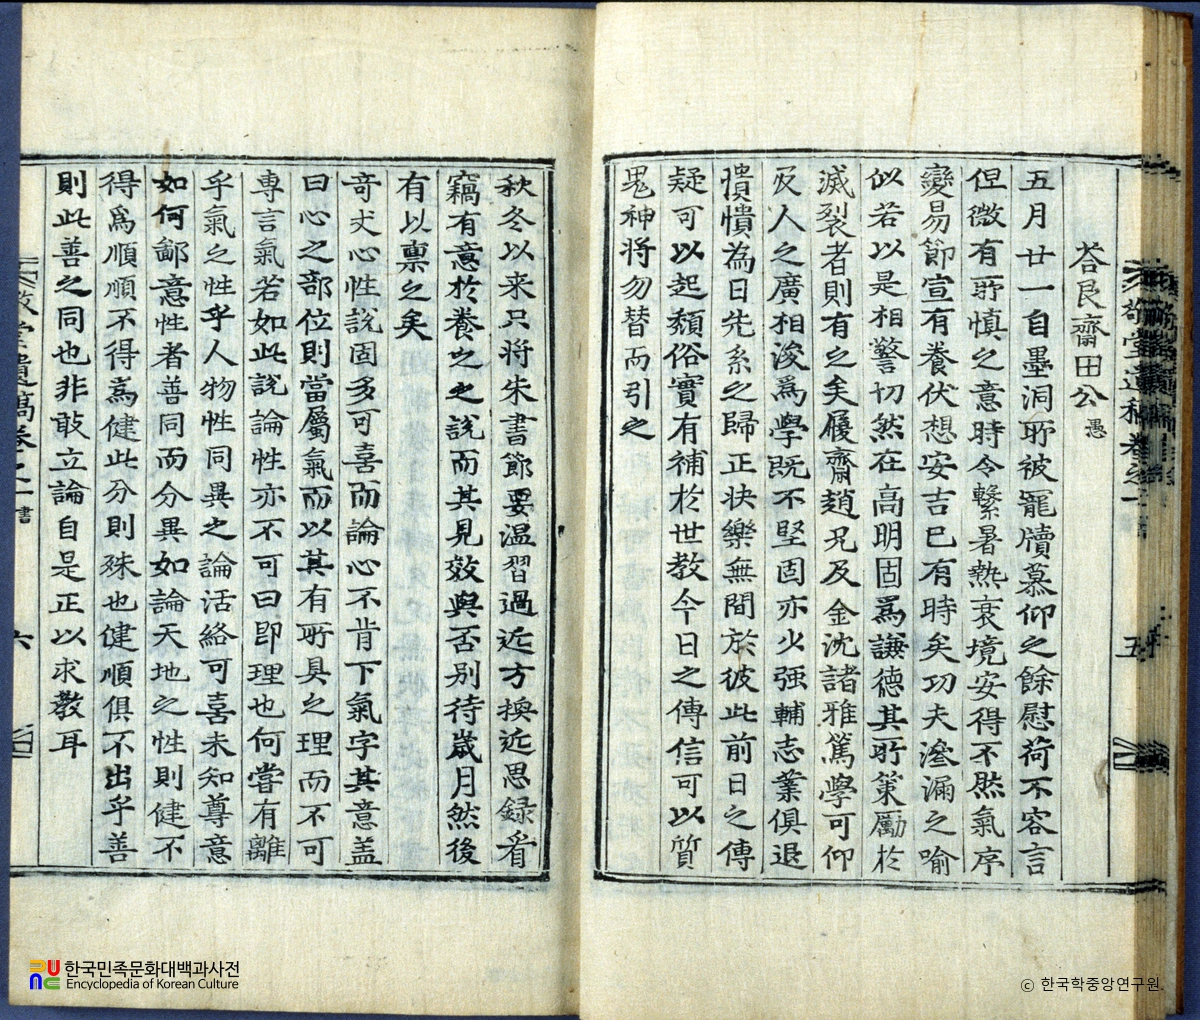 答艮齋田公 愚
五月廿一自墨洞所被寵牘慕仰之餘慰荷不容言
但微有所慎之意時令繫暑熱哀境安得不然氣序
變易節宣有養伏想安吉已有時矣功夫滲漏之喻
似若以是相警切然在高明固爲謙德其所策勵於
滅裂者則有之矣履齋趙兄及金沈諸雅篤學可仰
及人之廣相浚爲學既不堅固亦少强輔志業俱退
憒憒為日先系之歸正快樂無間於彼此前日之傳
疑可以起頹俗實有補於世教今日之傳信可以質
鬼神將勿替而引之
秋冬以来只將朱書節要温習過近方換近思録看
竊有意於養之之說而其見效與否别待歲月然後
有以稟之矣
奇丈心性說固多可喜而論心不肯下氣字其意盖
曰心之部位則當屬氣而以其有所具之理而不可
專言氣若如此說論性亦不可曰即理也何嘗有離
乎氣之性乎人物性同異之論活絡可喜未知尊意
如何鄙意性者善同而分異如論天地之性則健不
得爲順順不得爲健此分則殊也健順俱不出乎善
則此善之同也非敢立論自是正以求教耳
堂遺稿卷之一 書
六
五
한국민족문화대백과사전
Encyclopedia of Korean Culture
ⓒ 한국학중앙연구원.